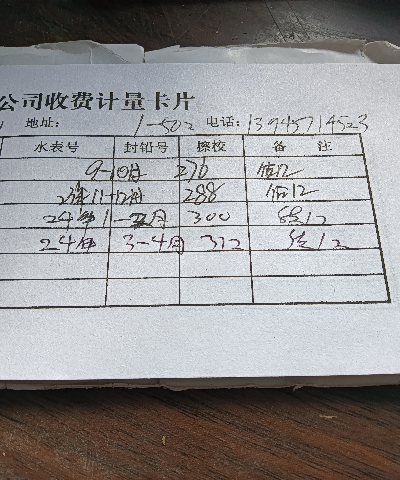 公司收费计量卡片
地址： 1-502 电话：13945714523
水表号 封铅号 擦校 备 注
9-10月 276 估12
11-12月 288 估12
24年1-2月 300 估12
24年 3-4月 312 估12